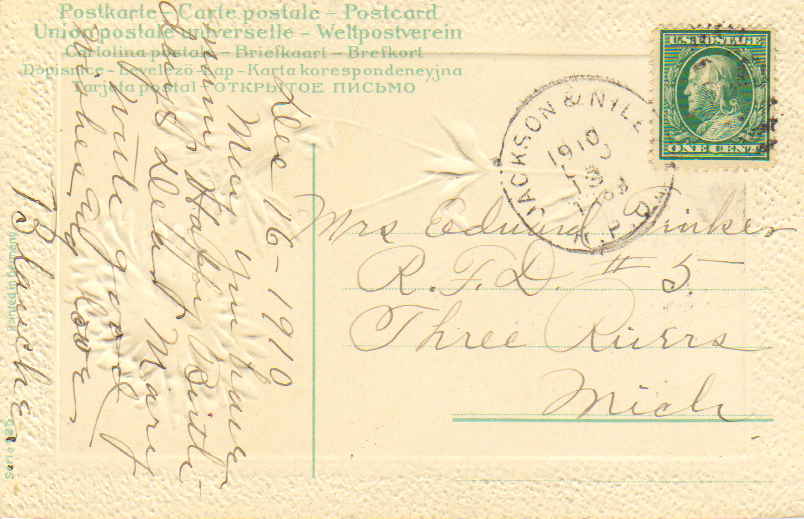 Postkarte – Carte postale – Postcard
Union postale universelle – Weltpostverein
Cartolina postale – Briefkaart – Brefkort
Dopisnice – Levelező-Lap – Karta korespondencyjna
Tarjeta postal – ОТКРЫТОЕ ПИСЬМО
U.S. POSTAGE
ONE CENT
JACKSON & NILES
1910
R.P.O.
Dec 16 – 1910
May you have
many Happy Birth-
days Dear Mary
with good
wishes and love
Blanche
Mrs Edward Brinker
R.F.D. # 5
Three Rivers
Mich
Printed in Germany